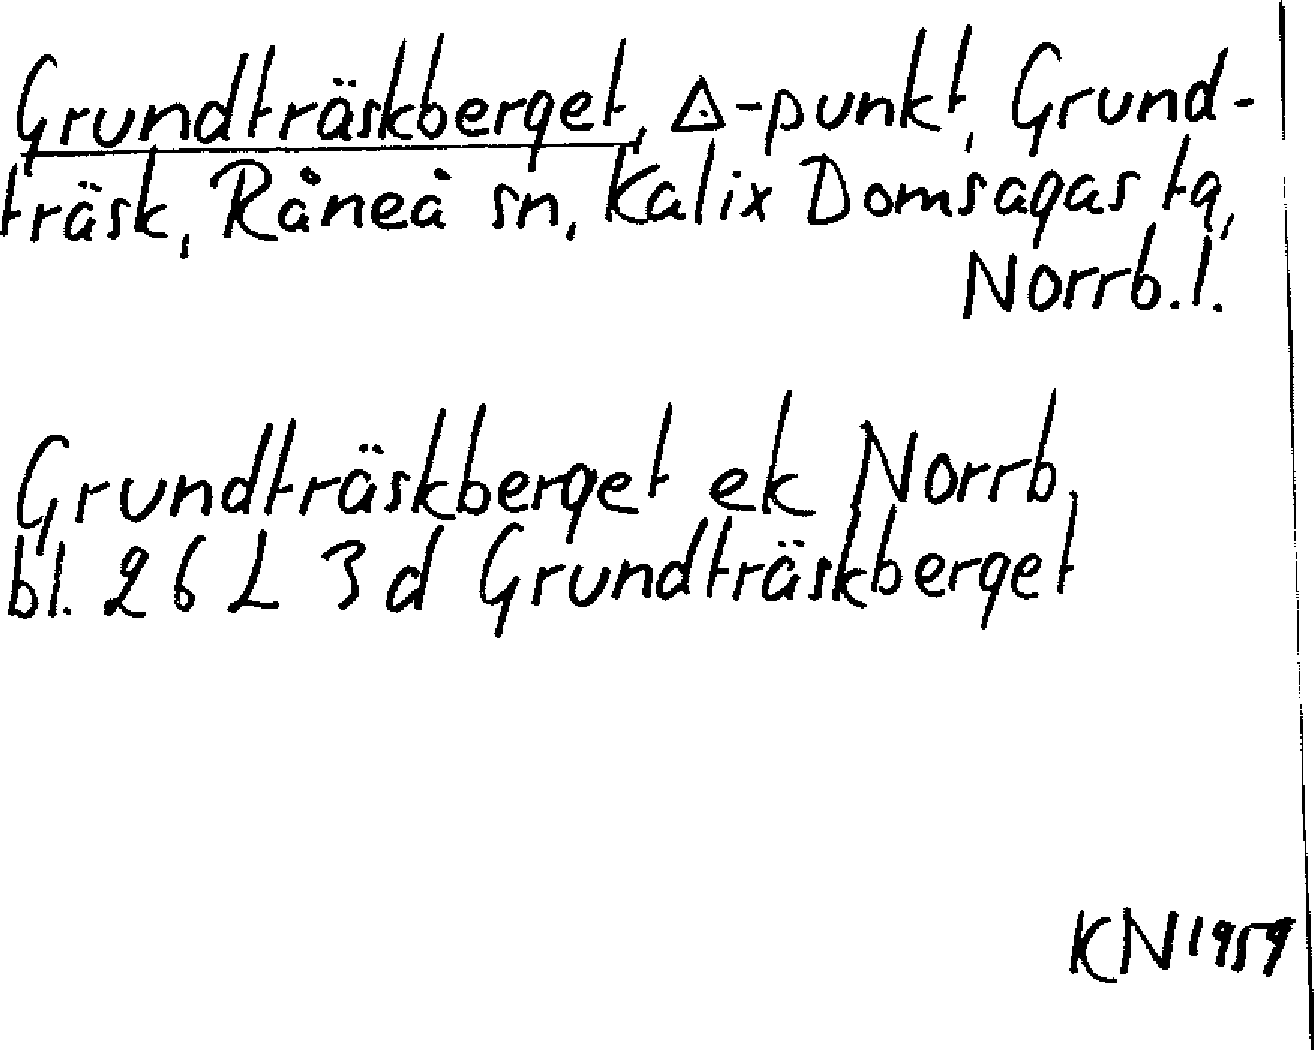 Grundträskberget, △-punkt, Grund-
träsk, Råneå sn, Kalix Domsagas tg,
Norrb.l.
Grundträskberget ek Norrb,
bl. 26 L 3d Grundträskberget
KN 1959